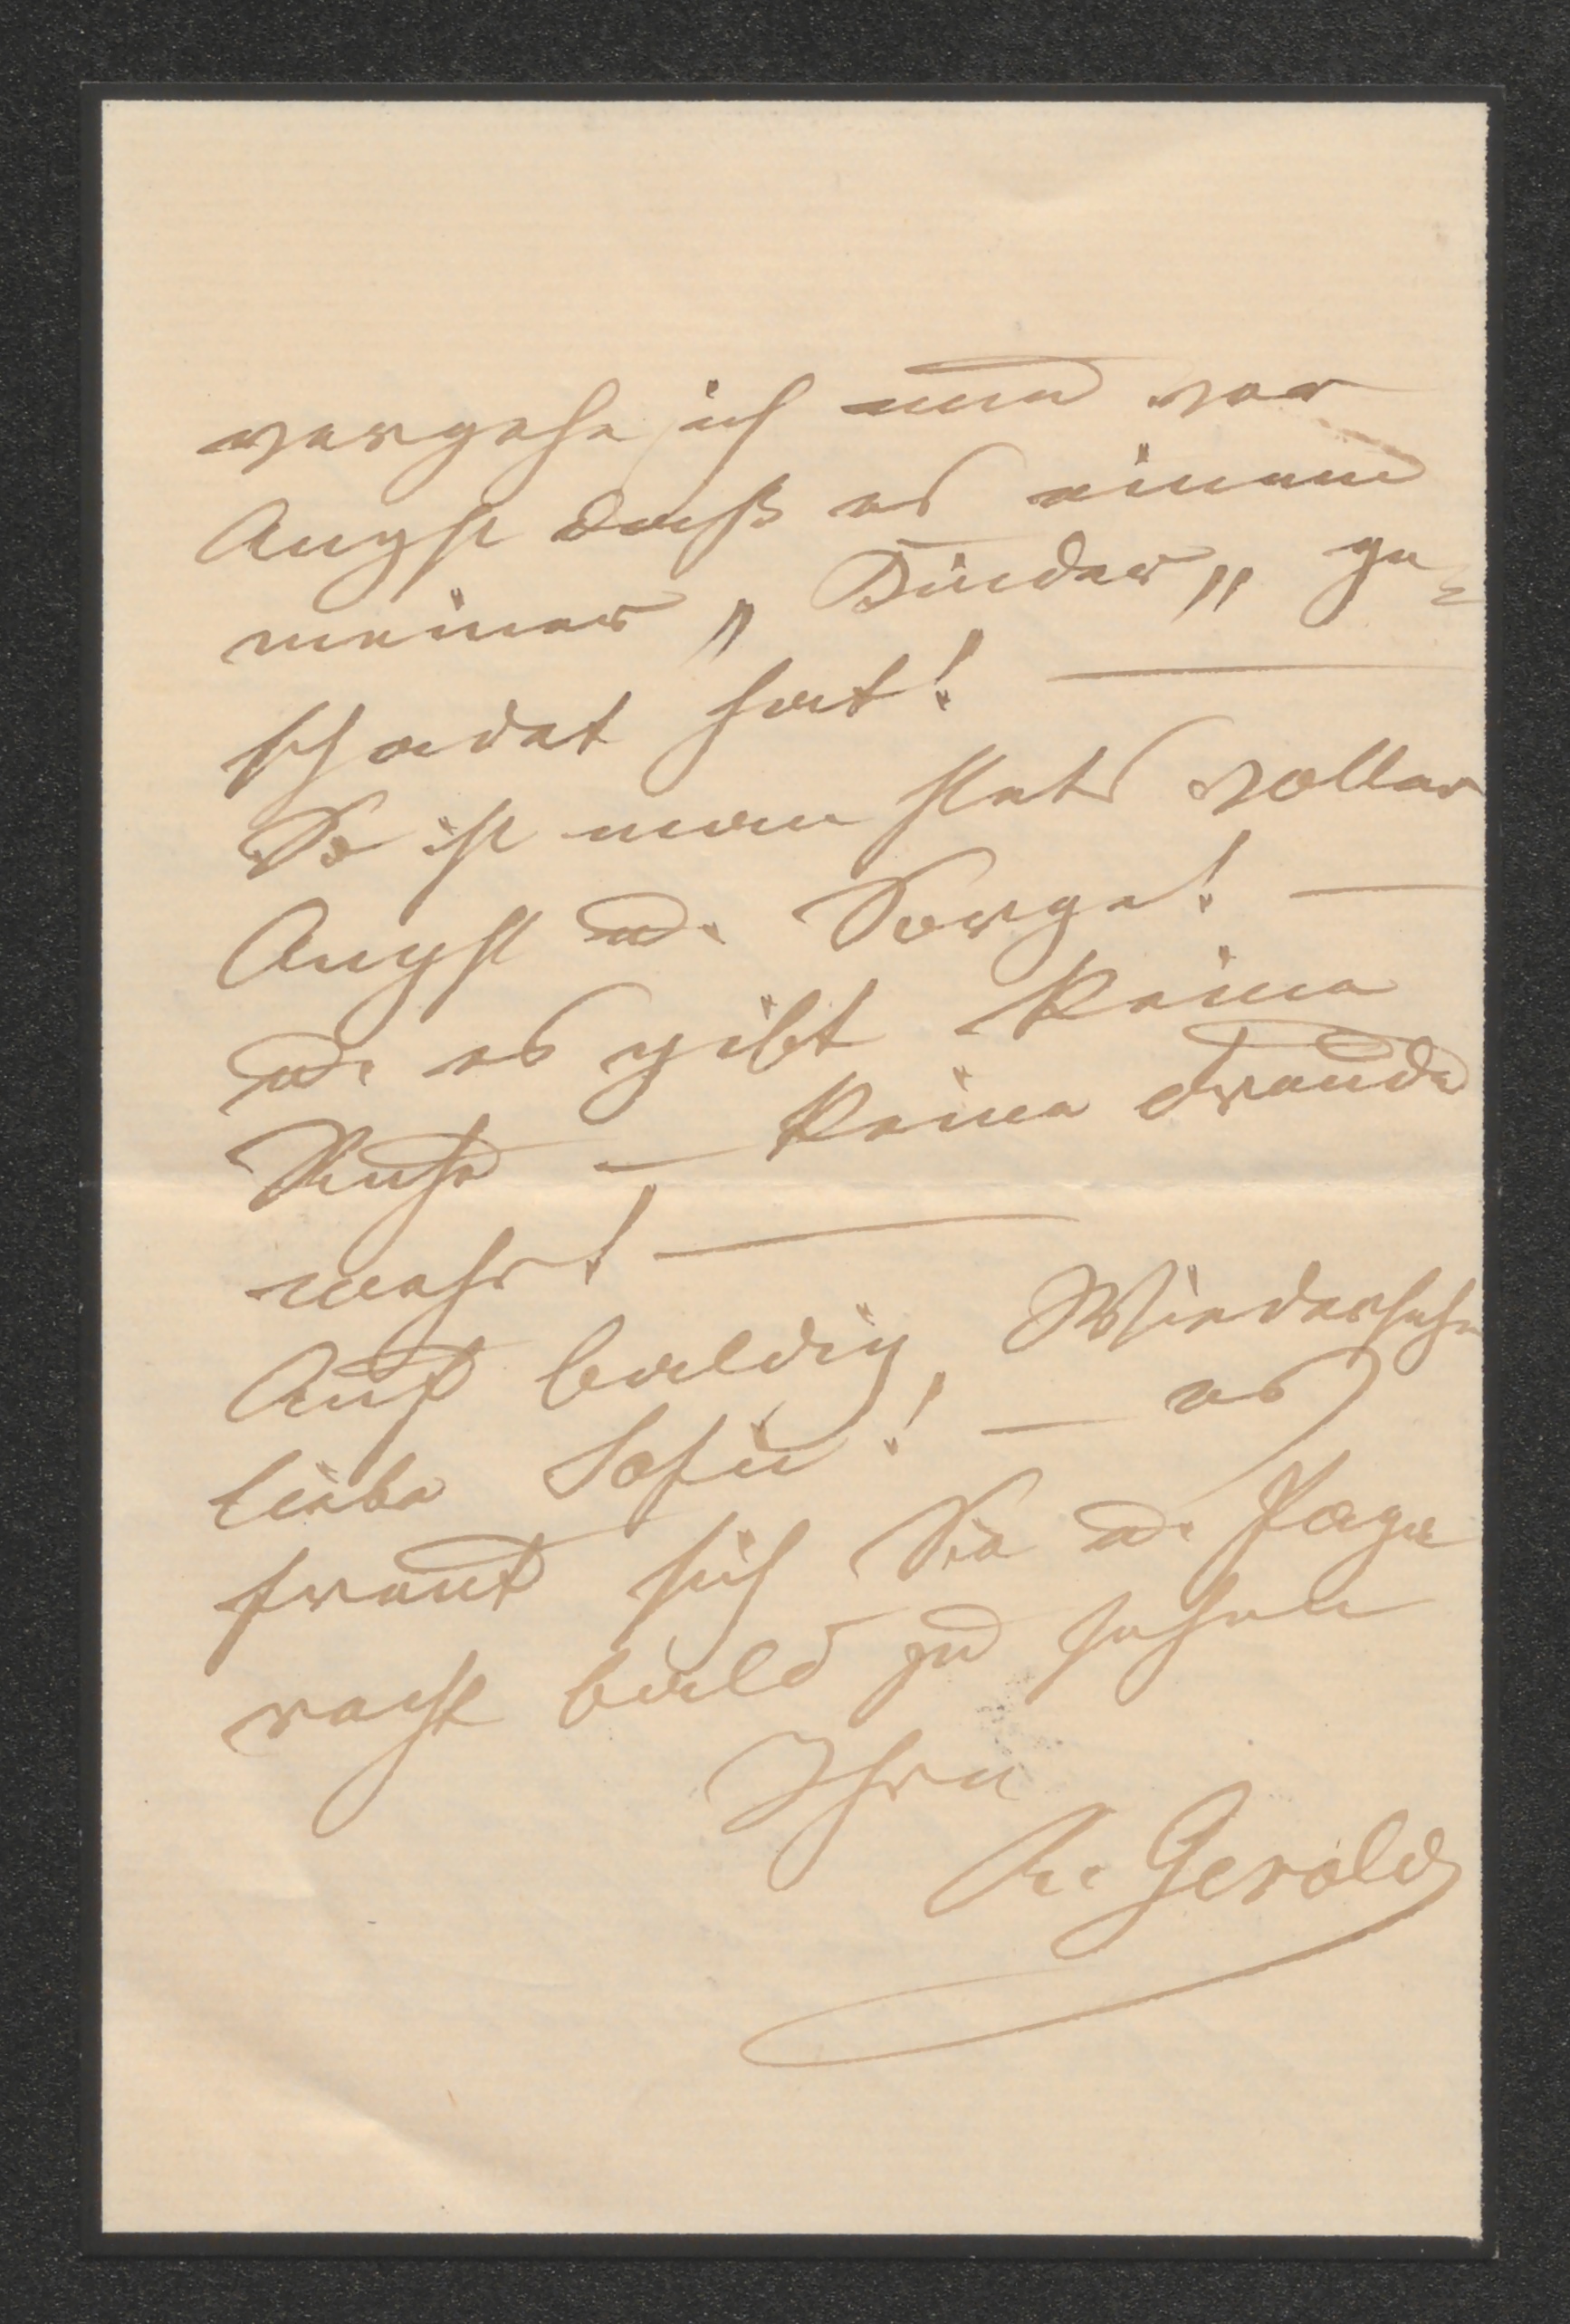 vergehe ich nun vor
Angst daß es einem
meiner „Kinder„ ge-
schadet hat! —
So ist man stets voller
Angst u. Sorge! —
u. es gibt keine
Ruhe — keine Freude
mehr! —
Auf baldig. Wiedersehn
liebe Sofie! — es
freut sich Sie u. Papa
recht bald zu sehen
Ihre
R. Gerold